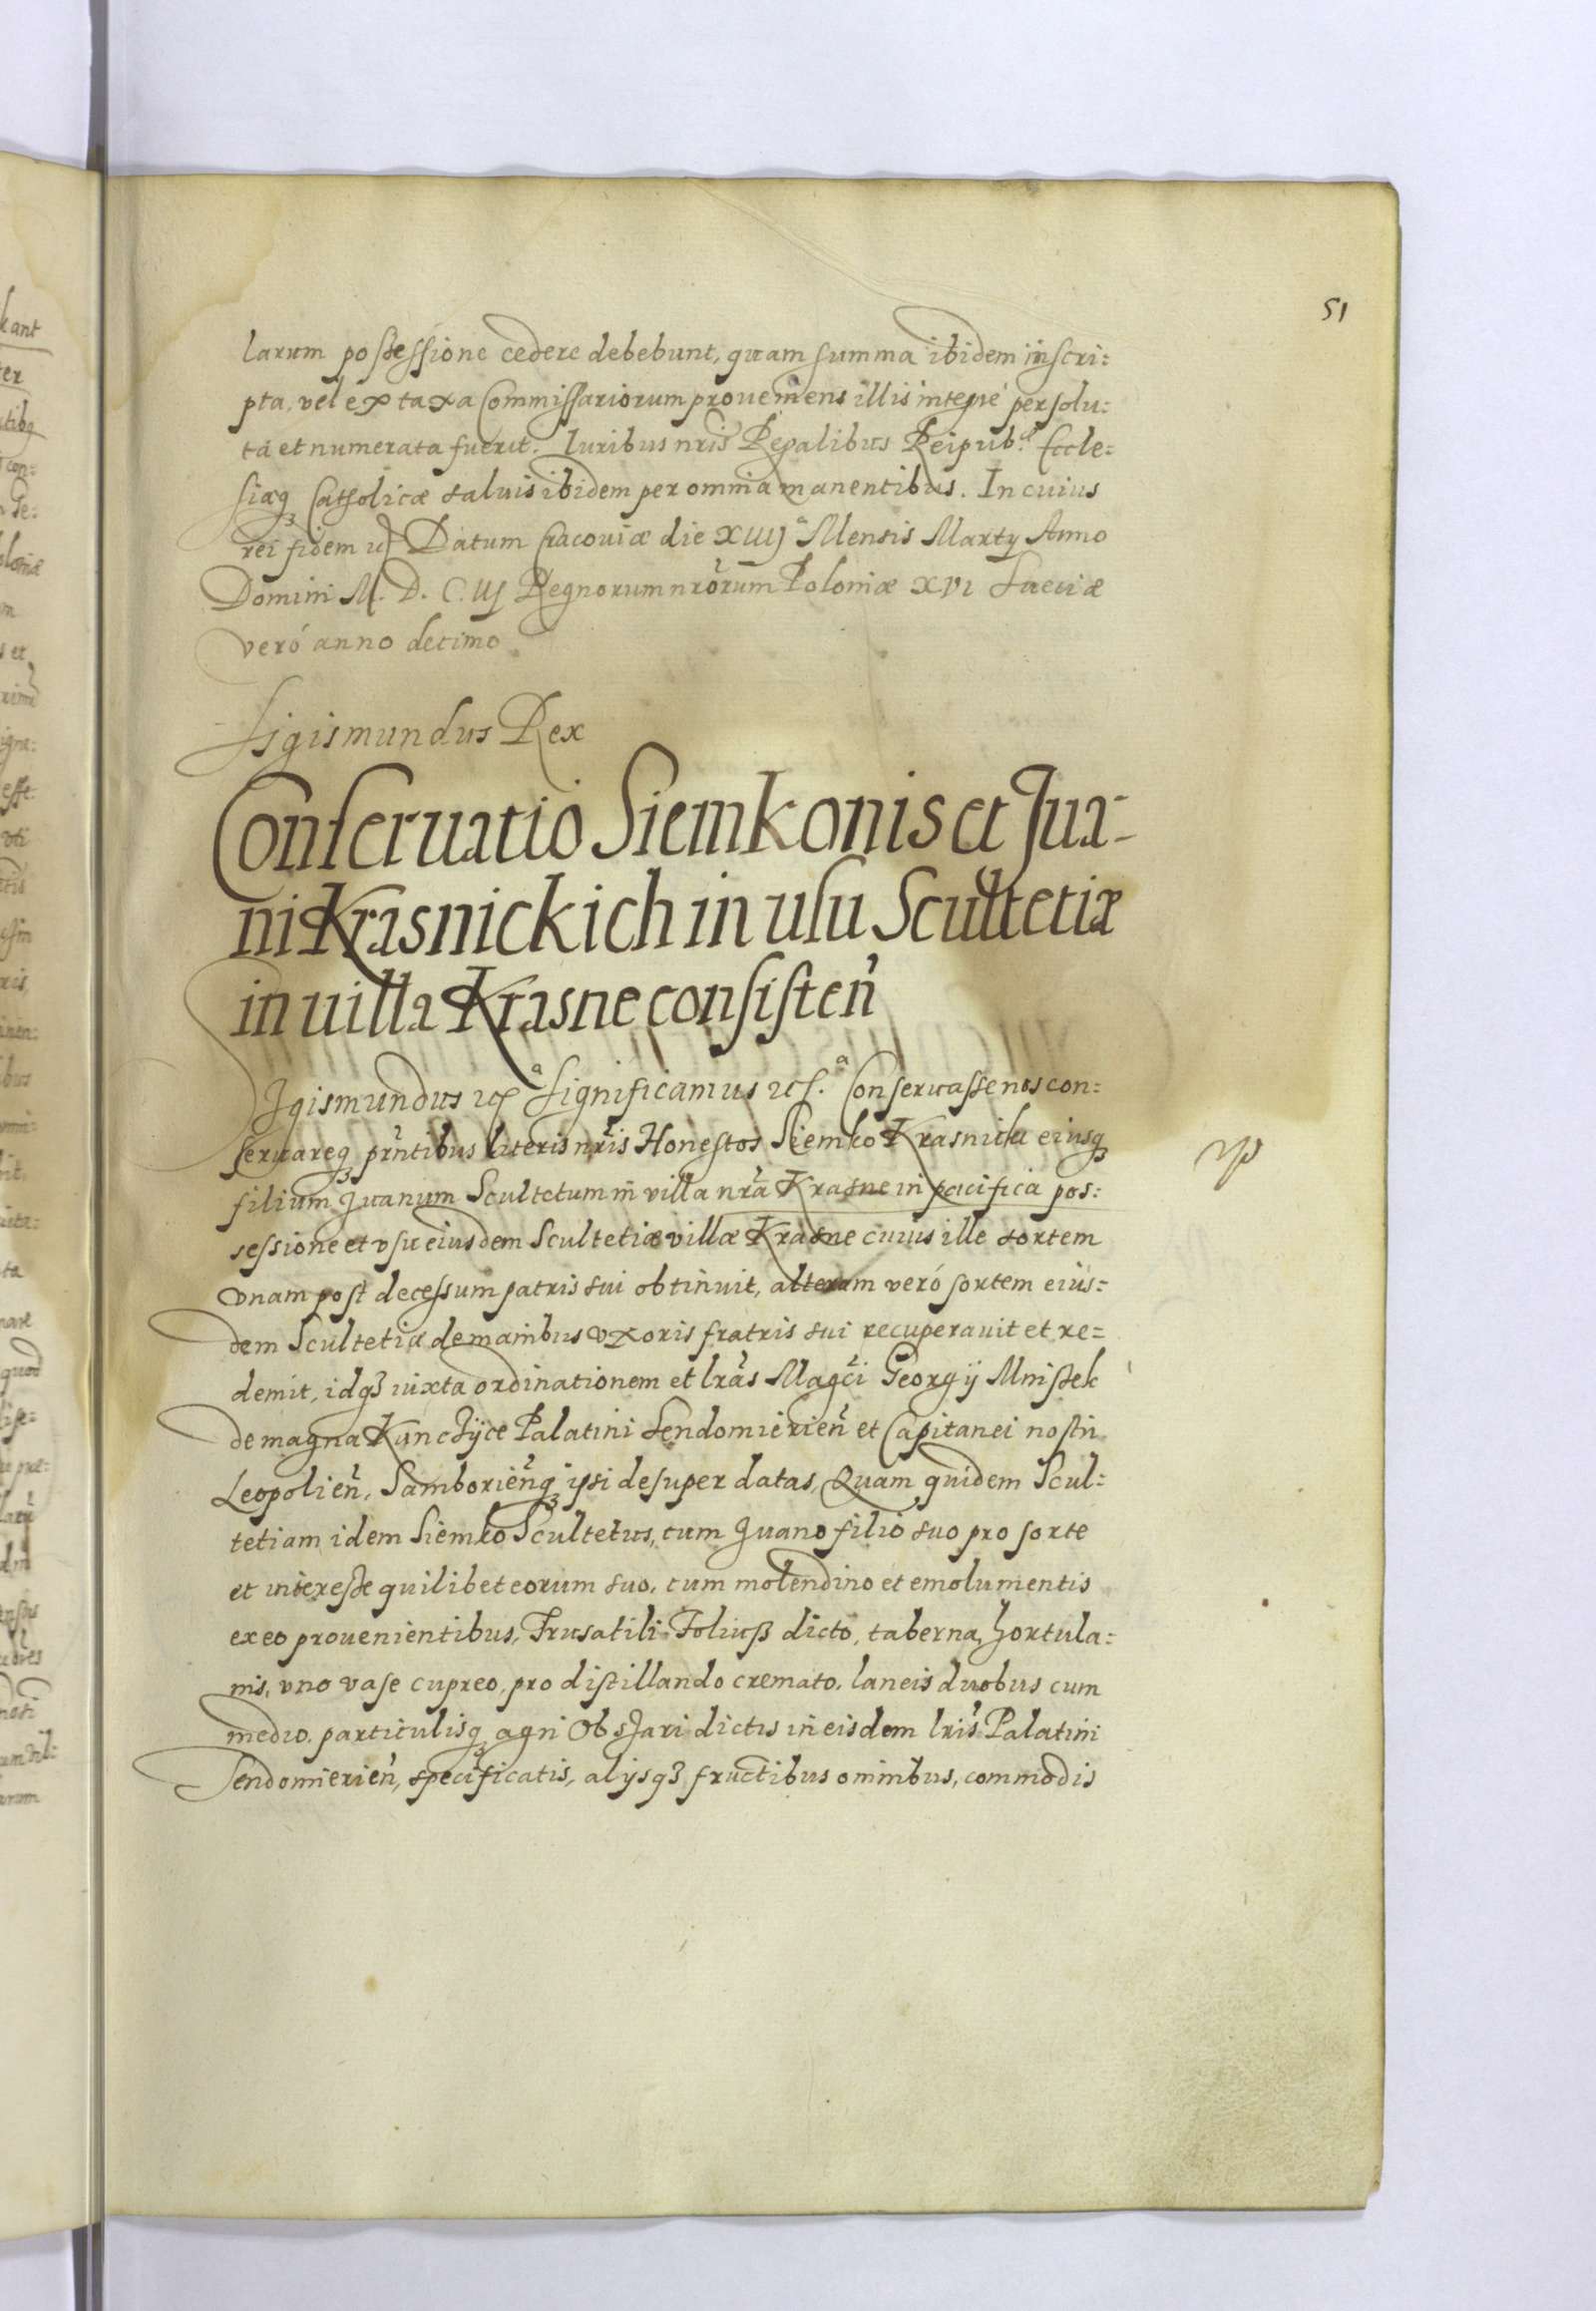 51
larum possessione cedere debebunt, quam summa ibidem inscri:
pta, vel ex taxa Commissariorum proueniens illis integrè persolu:
ta et numerata fuerit. Iuribus nris Regalibus Reipub. Eccle:
siæq Catholicæ saluis ibidem per omnia manentibus. In cuius
rei fidem Datum Cracouiæ die Mensis Marty Anno
Domini M. D. C. iij Regnorum nrorum Poloniæ XVI Sueciæ
verò anno decimo
Sigismundus Rex
Conseruatio Siemkonis et Jua-
ni Krasnickich in usu Scultetiæ
in uilla Krasne consisten
Sigismundus Significamus Conseruasse nos con:
seruareq prntibus literis nris Honestos Siemko Krasnicki eiusq
filium Juanum Scultetum in villa nra Krasne in pacifica pos:
sessione et vsu eiusdem Scultetiæ villæ Krasne cuius ille sortem
vnam post decessum patris sui obtinuit, alteram verò sortem eius:
dem Scultetiæ de manibus vxoris fratris sui recuperauit et re=
demit, idq3 iuxta ordinationem et lras Magci Georgij Mnissek
de magna Kunczÿce Palatini Sendomirien et Capitanei nostri
Leopolien, Samborienq ipsi desuper datas, Quam quidem Scul:
tetiam idem Siemko Scultetus, cum Juano filio suo pro sorte
et interesse quilibet eorum suo, cum molendino et emolumentis
ex eo prouenientibus, Trusatili Foliusz dicto, taberna, hortula:
nis, vno vase cupreo, pro distillando cremato, laneis duobus cum
medio, particulisq agri Obszari dictis in eisdem lris Palatini
Sendomierien, specificatis, alijsq3 fructibus omnibus, commodis